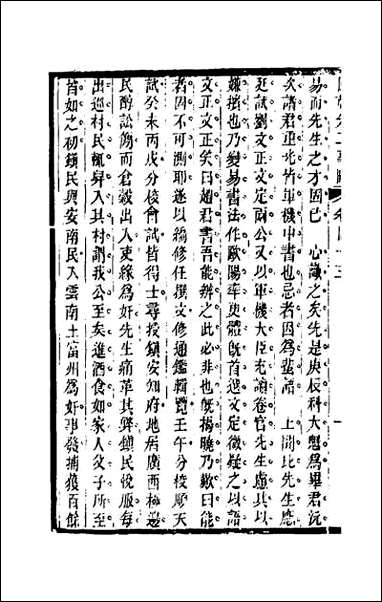 易而先生之才固已　心識之矣先是庚辰科大魁為畢君沅
次諸君重光皆軍機中書也忌者因為蜚語　上聞比先生應
廷試劉文正文定兩公又以軍機大臣充讀卷官先生慮其以
嫌擯也乃變易書法作歐陽率更體既首選文定微疑之以語
文正文正笑曰趙君書吾能辨之此必非也既揭曉乃歎曰能
者固不可測耶遂以編修任撰文修通鑑輯覽壬午分校順天
試癸未丙戌分校會試皆得士尋授鎮安知府地居廣西極邊
民醇訟簡而倉穀出入吏緣為奸先生痛革其弊鎮民悅服每
出巡村民輒舁入其村謂我公至矣進酒食如家人父子所至
皆如之初鎮民與安南民入雲南土富州為奸事發捕獲百餘